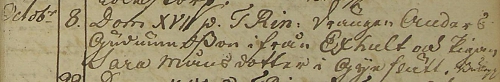 Octobr 8. Dom XVII p. T Rin: Drängen Anders
Gudmundsson ifrån Exhult och Pigan
Sara Månsdotter i